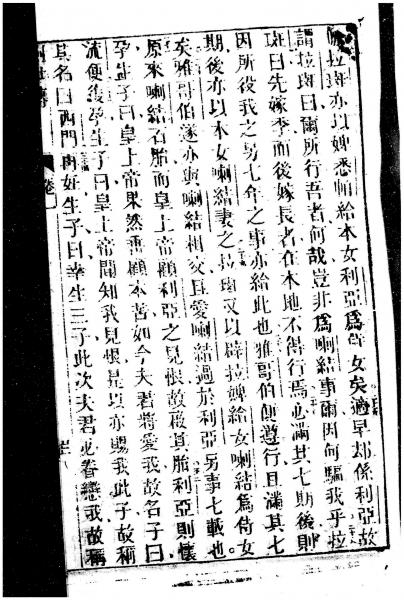 拉班亦以婢悉帕給本女利亞爲侍女矣適早却係利亞故
謂拉班曰爾所行吾者何哉豈非爲喇結事爾因何騙我乎拉
班曰先嫁季而後嫁長者在本地不得行焉必滿其七期後則
因所役我之另七年之事亦給此也雅哥伯便遵行且滿其七
期後亦以本女喇結妻之拉班又以辟拉婢給女喇結爲侍女
矣雅哥伯遂亦與喇結相交且愛喇結過於利亞另事七載也
原來喇結石胎而皇上帝顧利亞之見恨故啟其胎利亞則懷
孕生子曰皇上帝果然垂顧本苦如今夫君將愛我故名子曰
流便復孕生子曰皇上帝聞知我見恨是以亦賜我此子故稱
其名曰西門再妊生子曰幸生三子此次夫君必眷戀我故稱